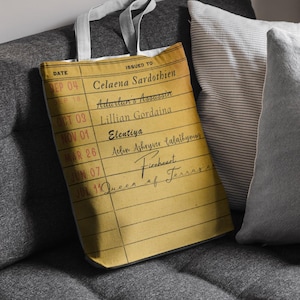 DATE ISSUED TO
SEP 04 Celaena Sardothien
Adarlan's Assassin
09 Lillian Gordaina
NOV 01 Elentiya
MAR 26 Aelin Ashryver Galathynius
JUN 07 Fireheart
Queen of Terrasen